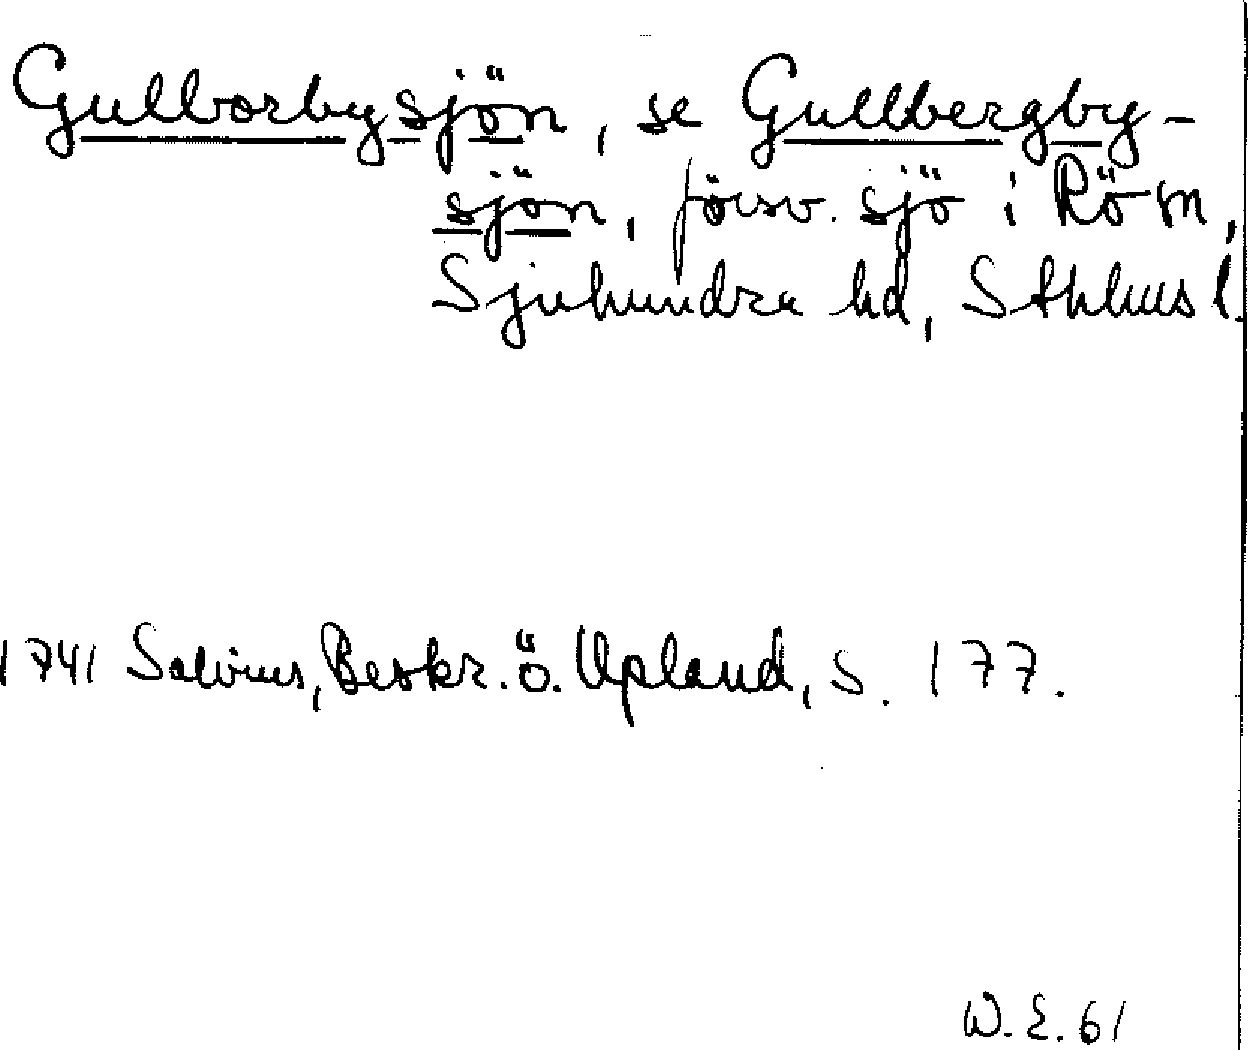 Gulborbysjön, se Gullbergby-
sjön, försv. sjö i Rö sn,
Sjuhundra hd, Sthlms l.
1741 Salvius, Beskr. ö. Upland, S. 177.
W.E. 61